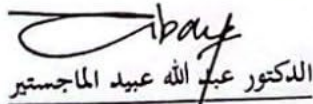 الدكتور عبد الله عبيد الماجستير